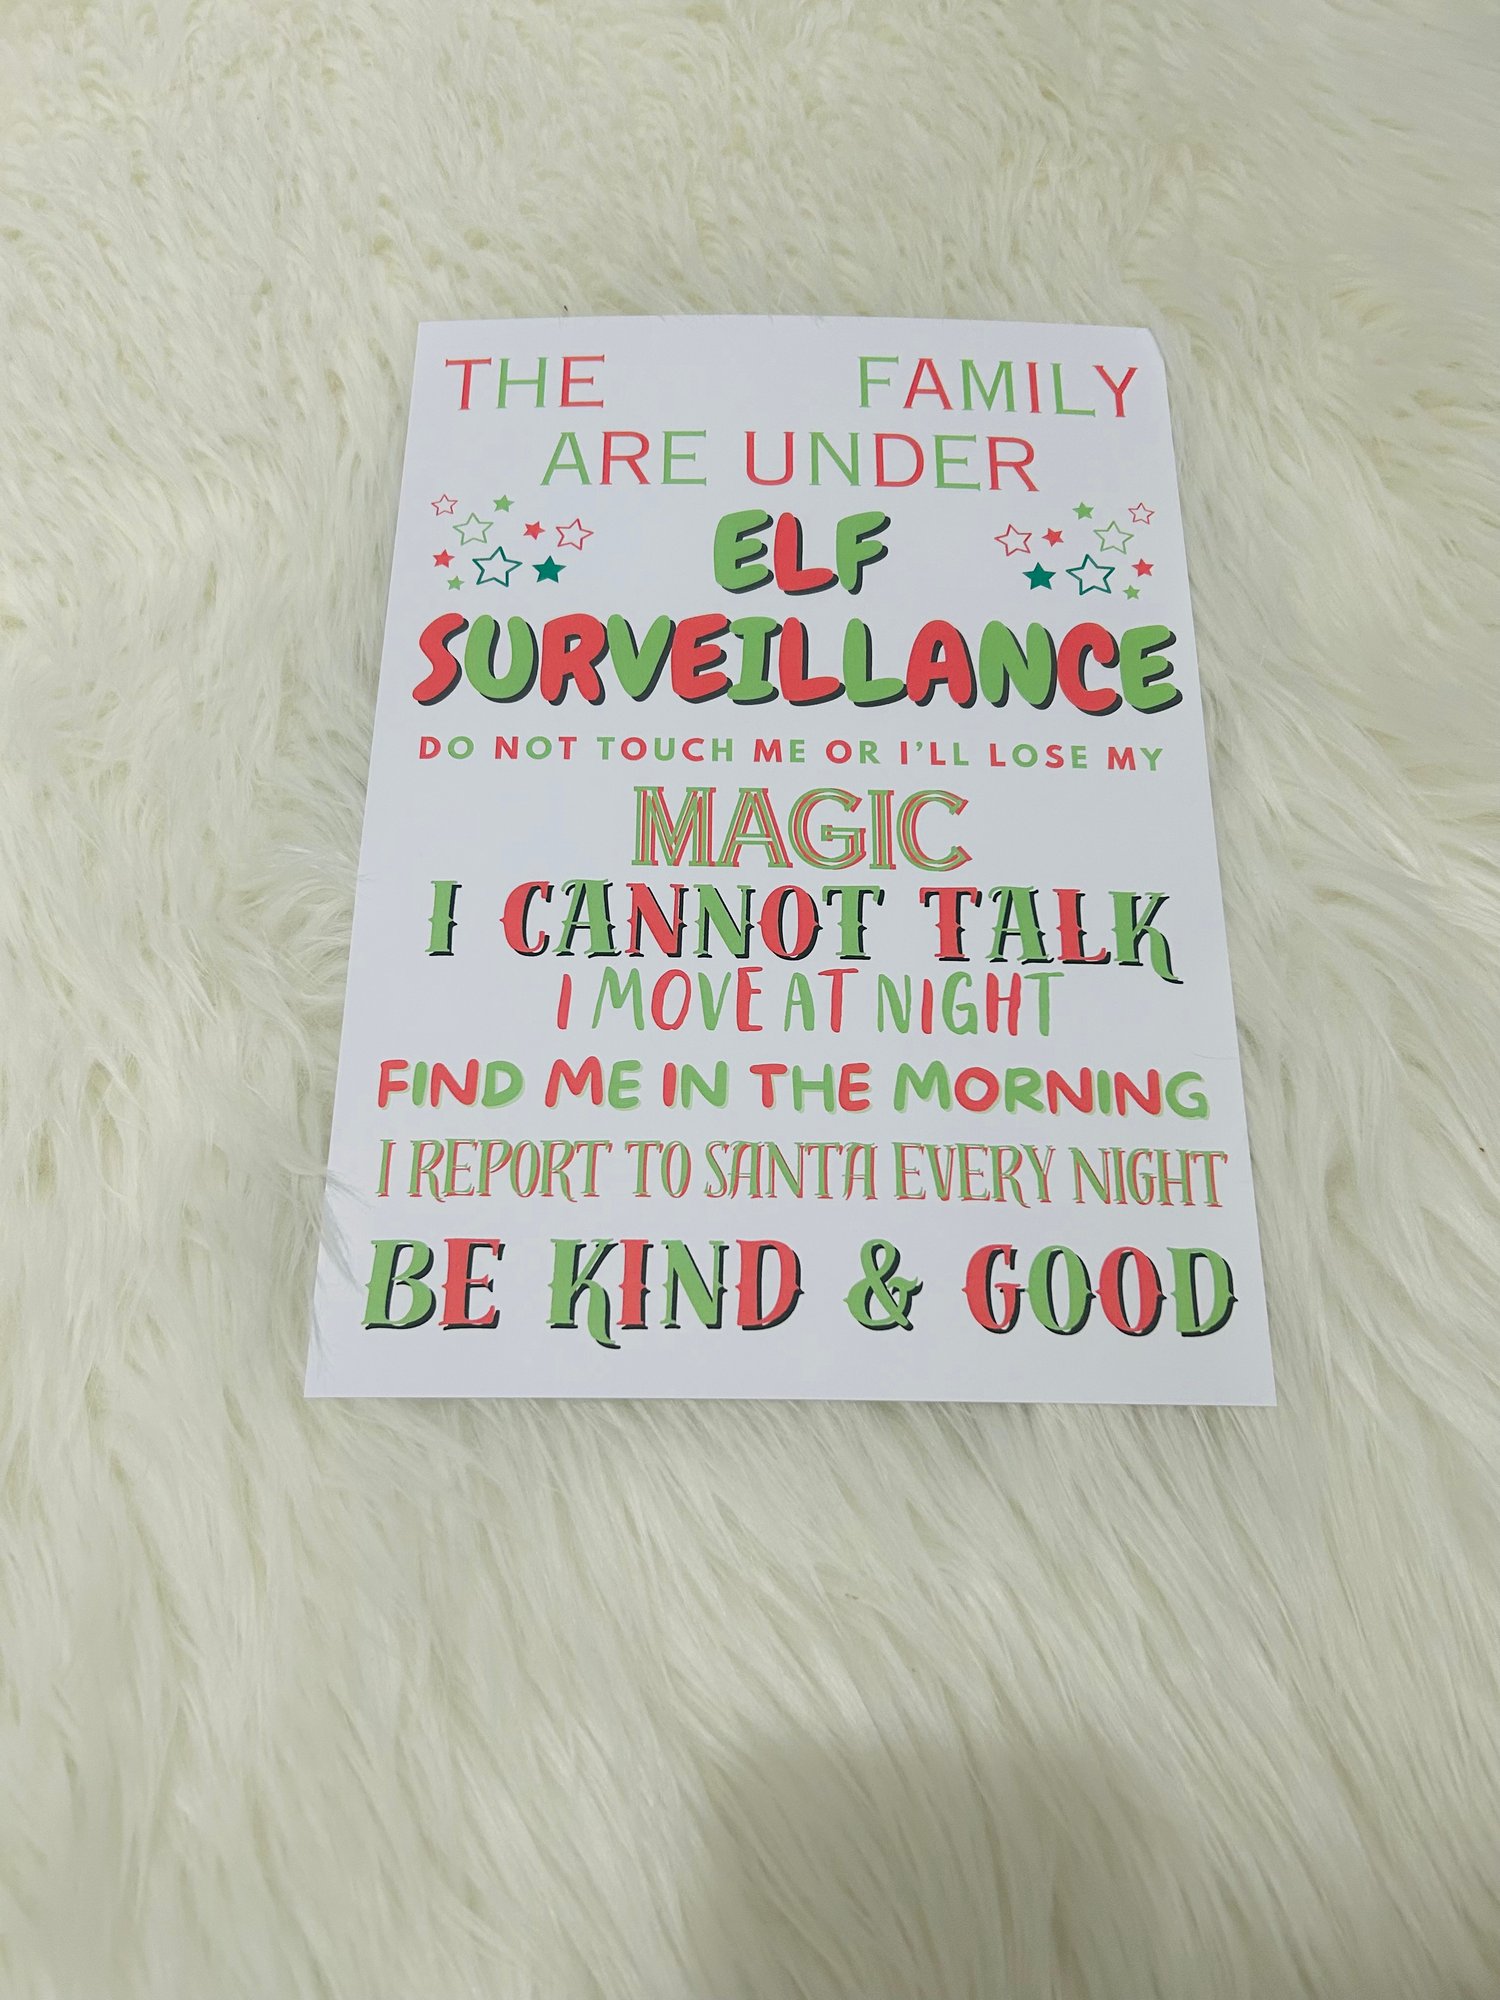 THE FAMILY
ARE UNDER
ELF
SURVEILLANCE
DO NOT TOUCH ME OR I'LL LOSE MY
MAGIC
I CANNOT TALK
I MOVE AT NIGHT
FIND ME IN THE MORNING
I REPORT TO SANTA EVERY NIGHT
BE KIND & GOOD